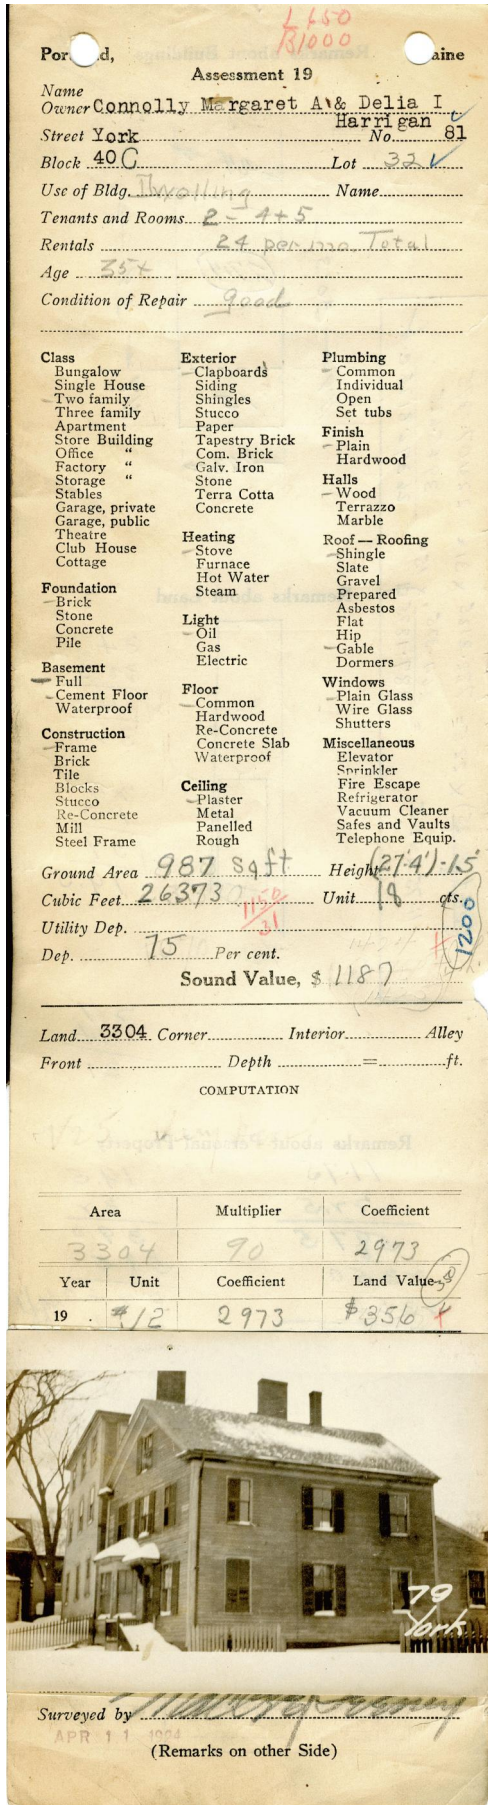 L 650
B 1000
Por d, aine
Assessment 19
Name
Owner Connolly Margaret A & Delia I
Harrigan
Street York No. 81
Block 40 C Lot 32 ✓
Use of Bldg. Dwelling Name
Tenants and Rooms 2 - 4+5
Rentals 24 per mo. Total
Age 35+
Condition of Repair good
Class
Bungalow
Single House
Two family
Three family
Apartment
Store Building
Office "
Factory "
Storage "
Stables
Garage, private
Garage, public
Theatre
Club House
Cottage
Foundation
Brick
Stone
Concrete
Pile
Basement
Full
Cement Floor
Waterproof
Construction
Frame
Brick
Tile
Blocks
Stucco
Re-Concrete
Mill
Steel Frame
Exterior
Clapboards
Siding
Shingles
Stucco
Paper
Tapestry Brick
Com. Brick
Galv. Iron
Stone
Terra Cotta
Concrete
Heating
Stove
Furnace
Hot Water
Steam
Light
Oil
Gas
Electric
Floor
Common
Hardwood
Re-Concrete
Concrete Slab
Waterproof
Ceiling
Plaster
Metal
Panelled
Rough
Plumbing
Common
Individual
Open
Set tubs
Finish
Plain
Hardwood
Halls
Wood
Terrazzo
Marble
Roof — Roofing
Shingle
Slate
Gravel
Prepared
Asbestos
Flat
Hip
Gable
Dormers
Windows
Plain Glass
Wire Glass
Shutters
Miscellaneous
Elevator
Sprinkler
Fire Escape
Refrigerator
Vacuum Cleaner
Safes and Vaults
Telephone Equip.
Ground Area 987 sqft Height (27'4')-1.5
Cubic Feet 26373 Unit 18 cts.
1150
31
1200
Utility Dep.
Dep. 75 Per cent.
Sound Value, $ 1187
Land 3304 Corner Interior Alley
Front Depth = ft.
COMPUTATION
Area Multiplier Coefficient
3304 90 2973
Year Unit Coefficient Land Value
19 . #12 2973 $356 +
79
York
Surveyed by
APR 11
(Remarks on other Side)